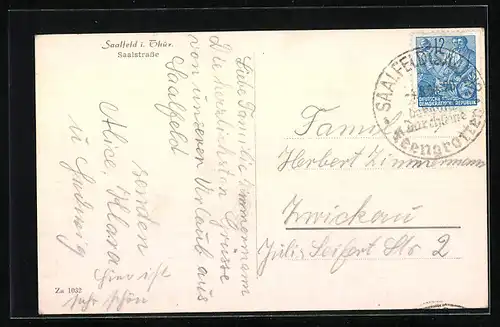 Saalfeld i. Thür.
Saalstraße
Liebe Familie Zimmermann
Die herzlichsten Grüsse
von unseren Urlaub aus
Saalfeld
senden
Alice, Klara
u Hedwig
Hier ist
sehr schön
Za 1032
12
DEUTSCHE
DEMOKRATISCHE REPUBLIK
SAALFELD (SAALE)
Feengrotten
Familie
Herbert Zimmermann
Zwickau
Julius Seifert Str 2